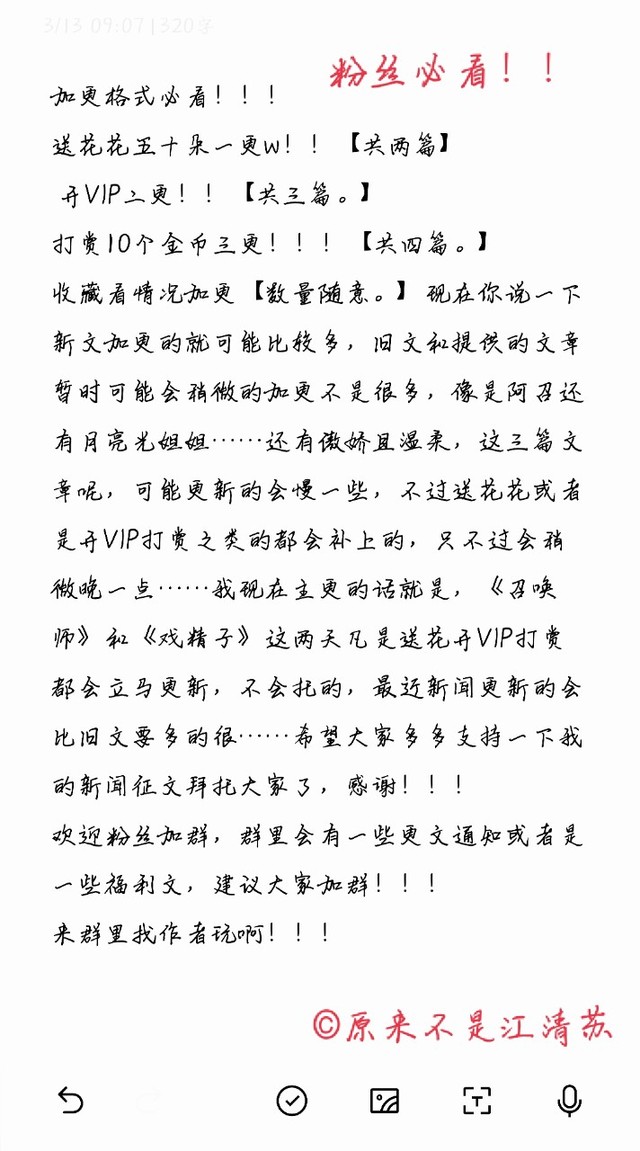 3/13 09:07 | 320字
粉丝必看！！
加更格式必看！！！
送花花五十朵一更w！！【共两篇】
开VIP二更！！【共三篇。】
打赏10个金币三更！！！【共四篇。】
收藏看情况加更【数量随意。】现在你说一下
新文加更的就可能比较多，旧文和提供的文章
暂时可能会稍微的加更不是很多，像是阿召还
有月亮光姐姐……还有傲娇且温柔，这三篇文
章呢，可能更新的会慢一些，不过送花花或者
是开VIP打赏之类的都会补上的，只不过会稍
微晚一点……我现在主更的话就是，《召唤
师》和《戏精子》这两天凡是送花开VIP打赏
都会立马更新，不会托的，最近新闻更新的会
比旧文要多的很……希望大家多多支持一下我
的新闻征文拜托大家了，感谢！！！
欢迎粉丝加群，群里会有一些更文通知或者是
一些福利文，建议大家加群！！！
来群里找作者玩啊！！！
©原来不是江清苏